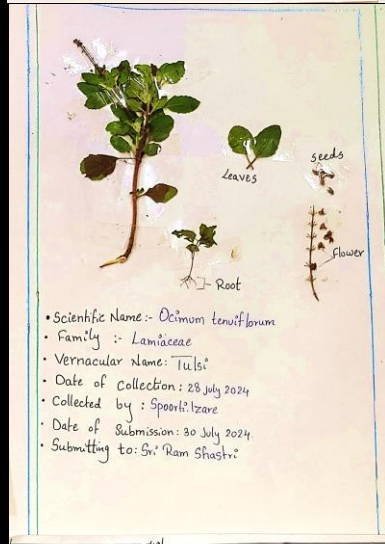 seeds
Leaves
flower
Root
• Scientific Name:- Ocimum tenuiflorum
• Family :- Lamiaceae
• Vernacular Name: Tulsi
• Date of collection: 28 july 2024
• Collected by : Spoorti.Izare
• Date of Submission: 30 July 2024.
• Submitting to: Sri Ram Shastri